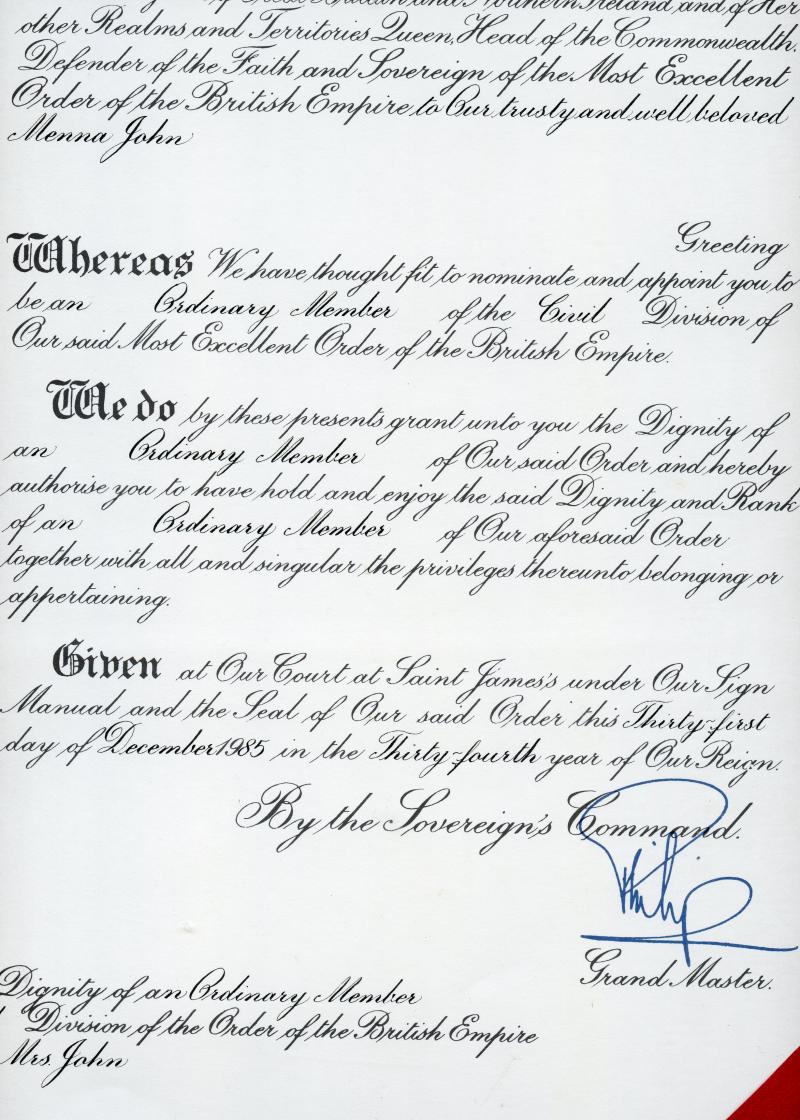 of Great Britain and Northern Ireland and of Her
other Realms and Territories Queen, Head of the Commonwealth,
Defender of the Faith and Sovereign of the Most Excellent
Order of the British Empire to Our trusty and well beloved
Menna John
Greeting
Whereas We have thought fit to nominate and appoint you to
be an Ordinary Member of the Civil Division of
Our said Most Excellent Order of the British Empire.
We do by these presents grant unto you the Dignity of
an Ordinary Member of Our said Order and hereby
authorise you to have hold and enjoy the said Dignity and Rank
of an Ordinary Member of Our aforesaid Order
together with all and singular the privileges thereunto belonging or
appertaining.
Given at Our Court at Saint James's under Our Sign
Manual and the Seal of Our said Order this Thirty-first
day of December 1985 in the Thirty-fourth year of Our Reign.
By the Sovereign's Command.
Philip
Grand Master.
Dignity of an Ordinary Member
Division of the Order of the British Empire
Mrs. John